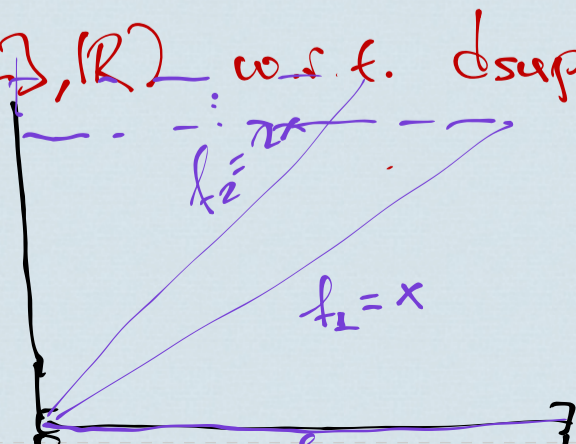 ], ℝ) w.r.t. dsup
f₂ = 2x
f₁ = x
[ ]